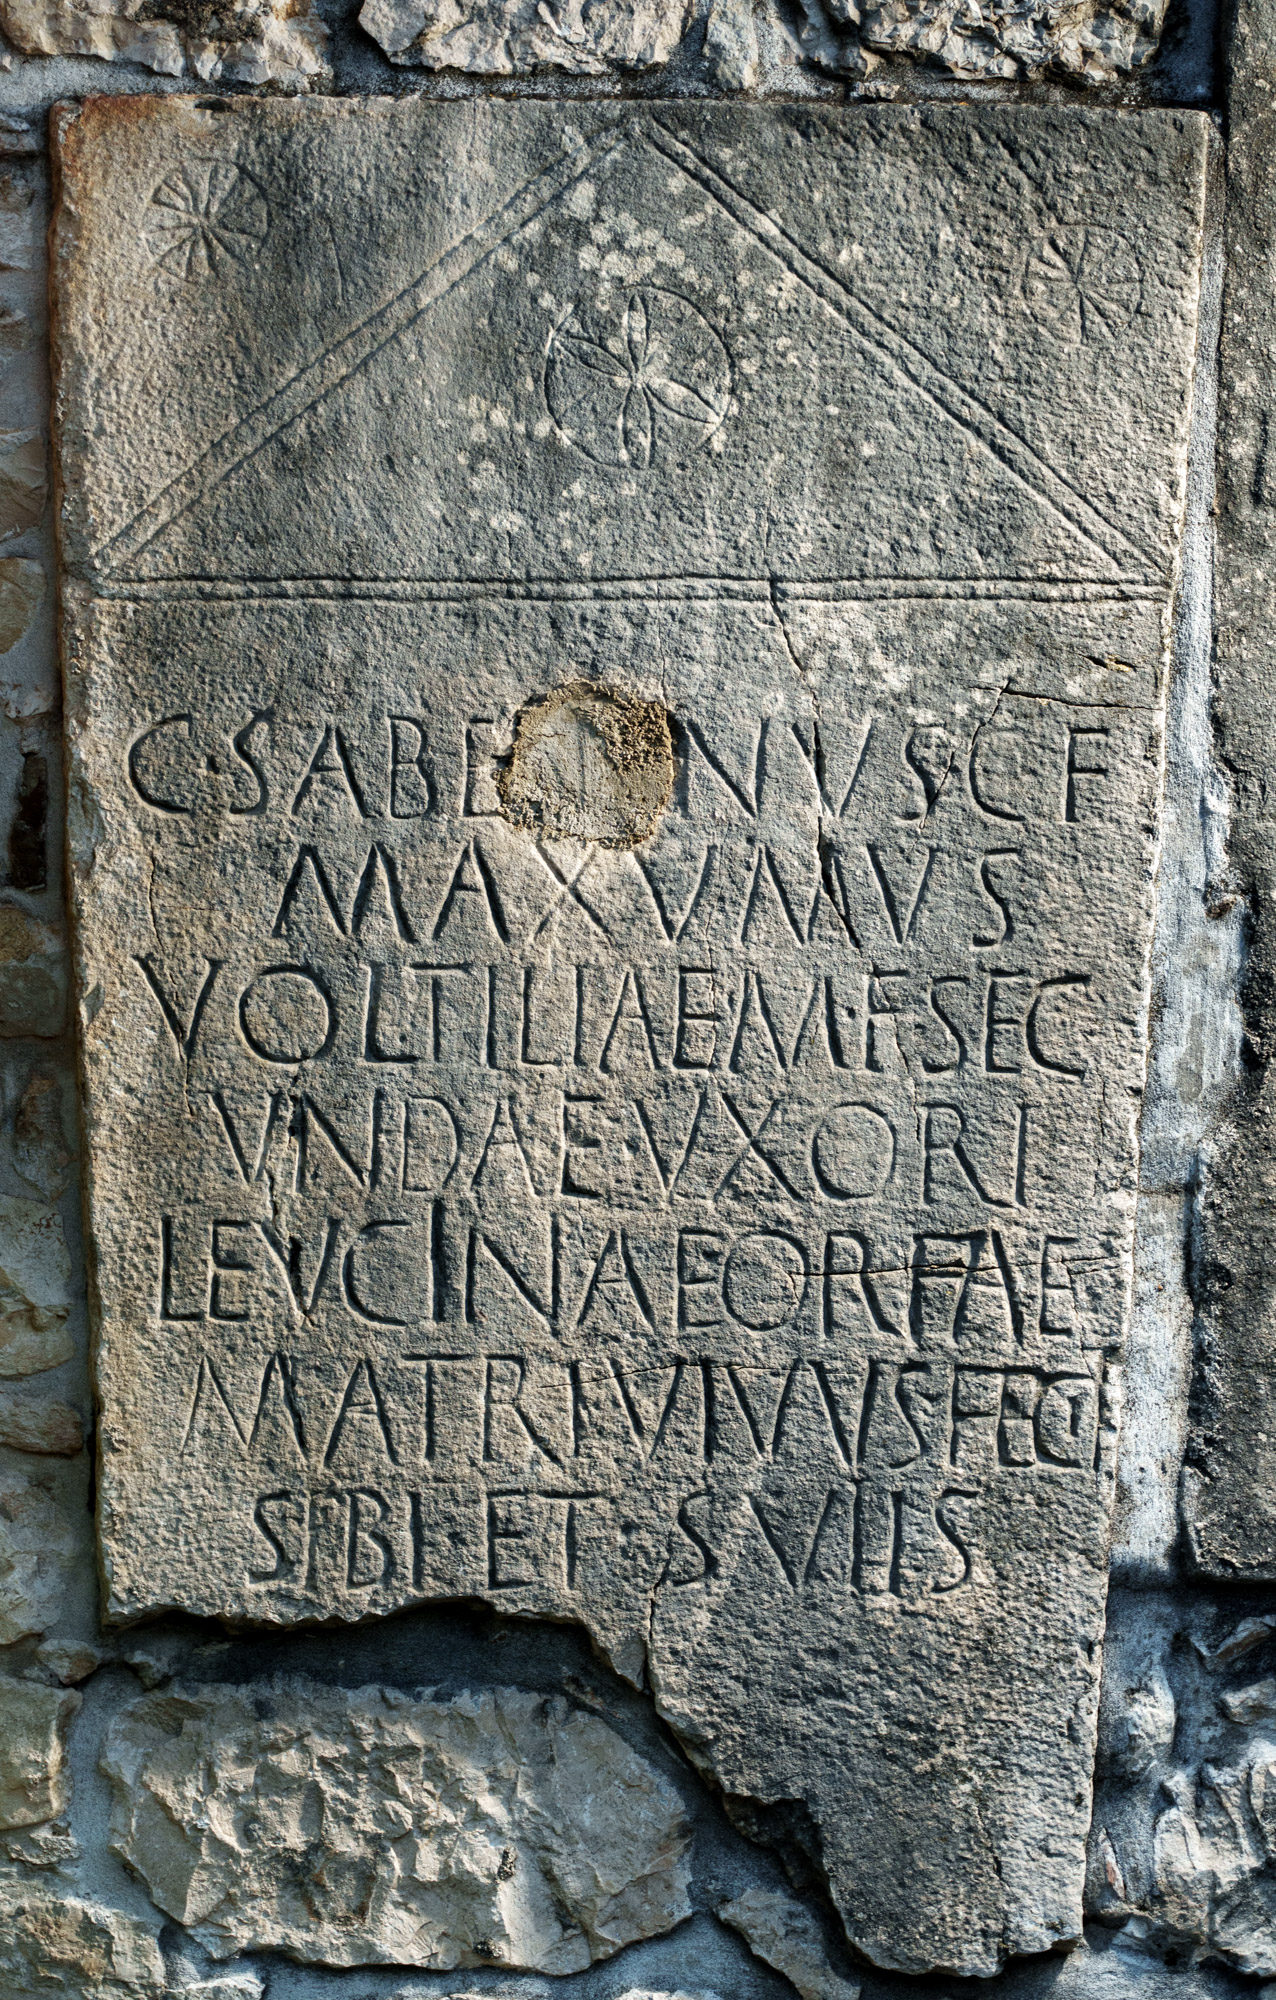 C SABE NVS C F
MAXVMVS
VOLTILIAE M·F SEC
VNDAE·VXORI
LEVCINAE ORFAE
MATRI VIVVS FECI
SIBI·ET SVIS